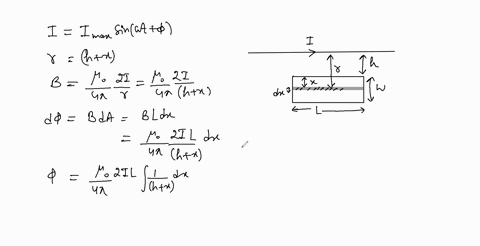 I = Imax sin(ωt+ϕ)
r = (h+x)
B = μ0/4π 2I/r = μ0/4π 2I/(h+x)
dϕ = BdA = BLdx
= μ0/4π 2IL/(h+x) dx
ϕ = μ0/4π 2IL ∫ 1/(h+x) dx
I
r
h
x
dx
w
L